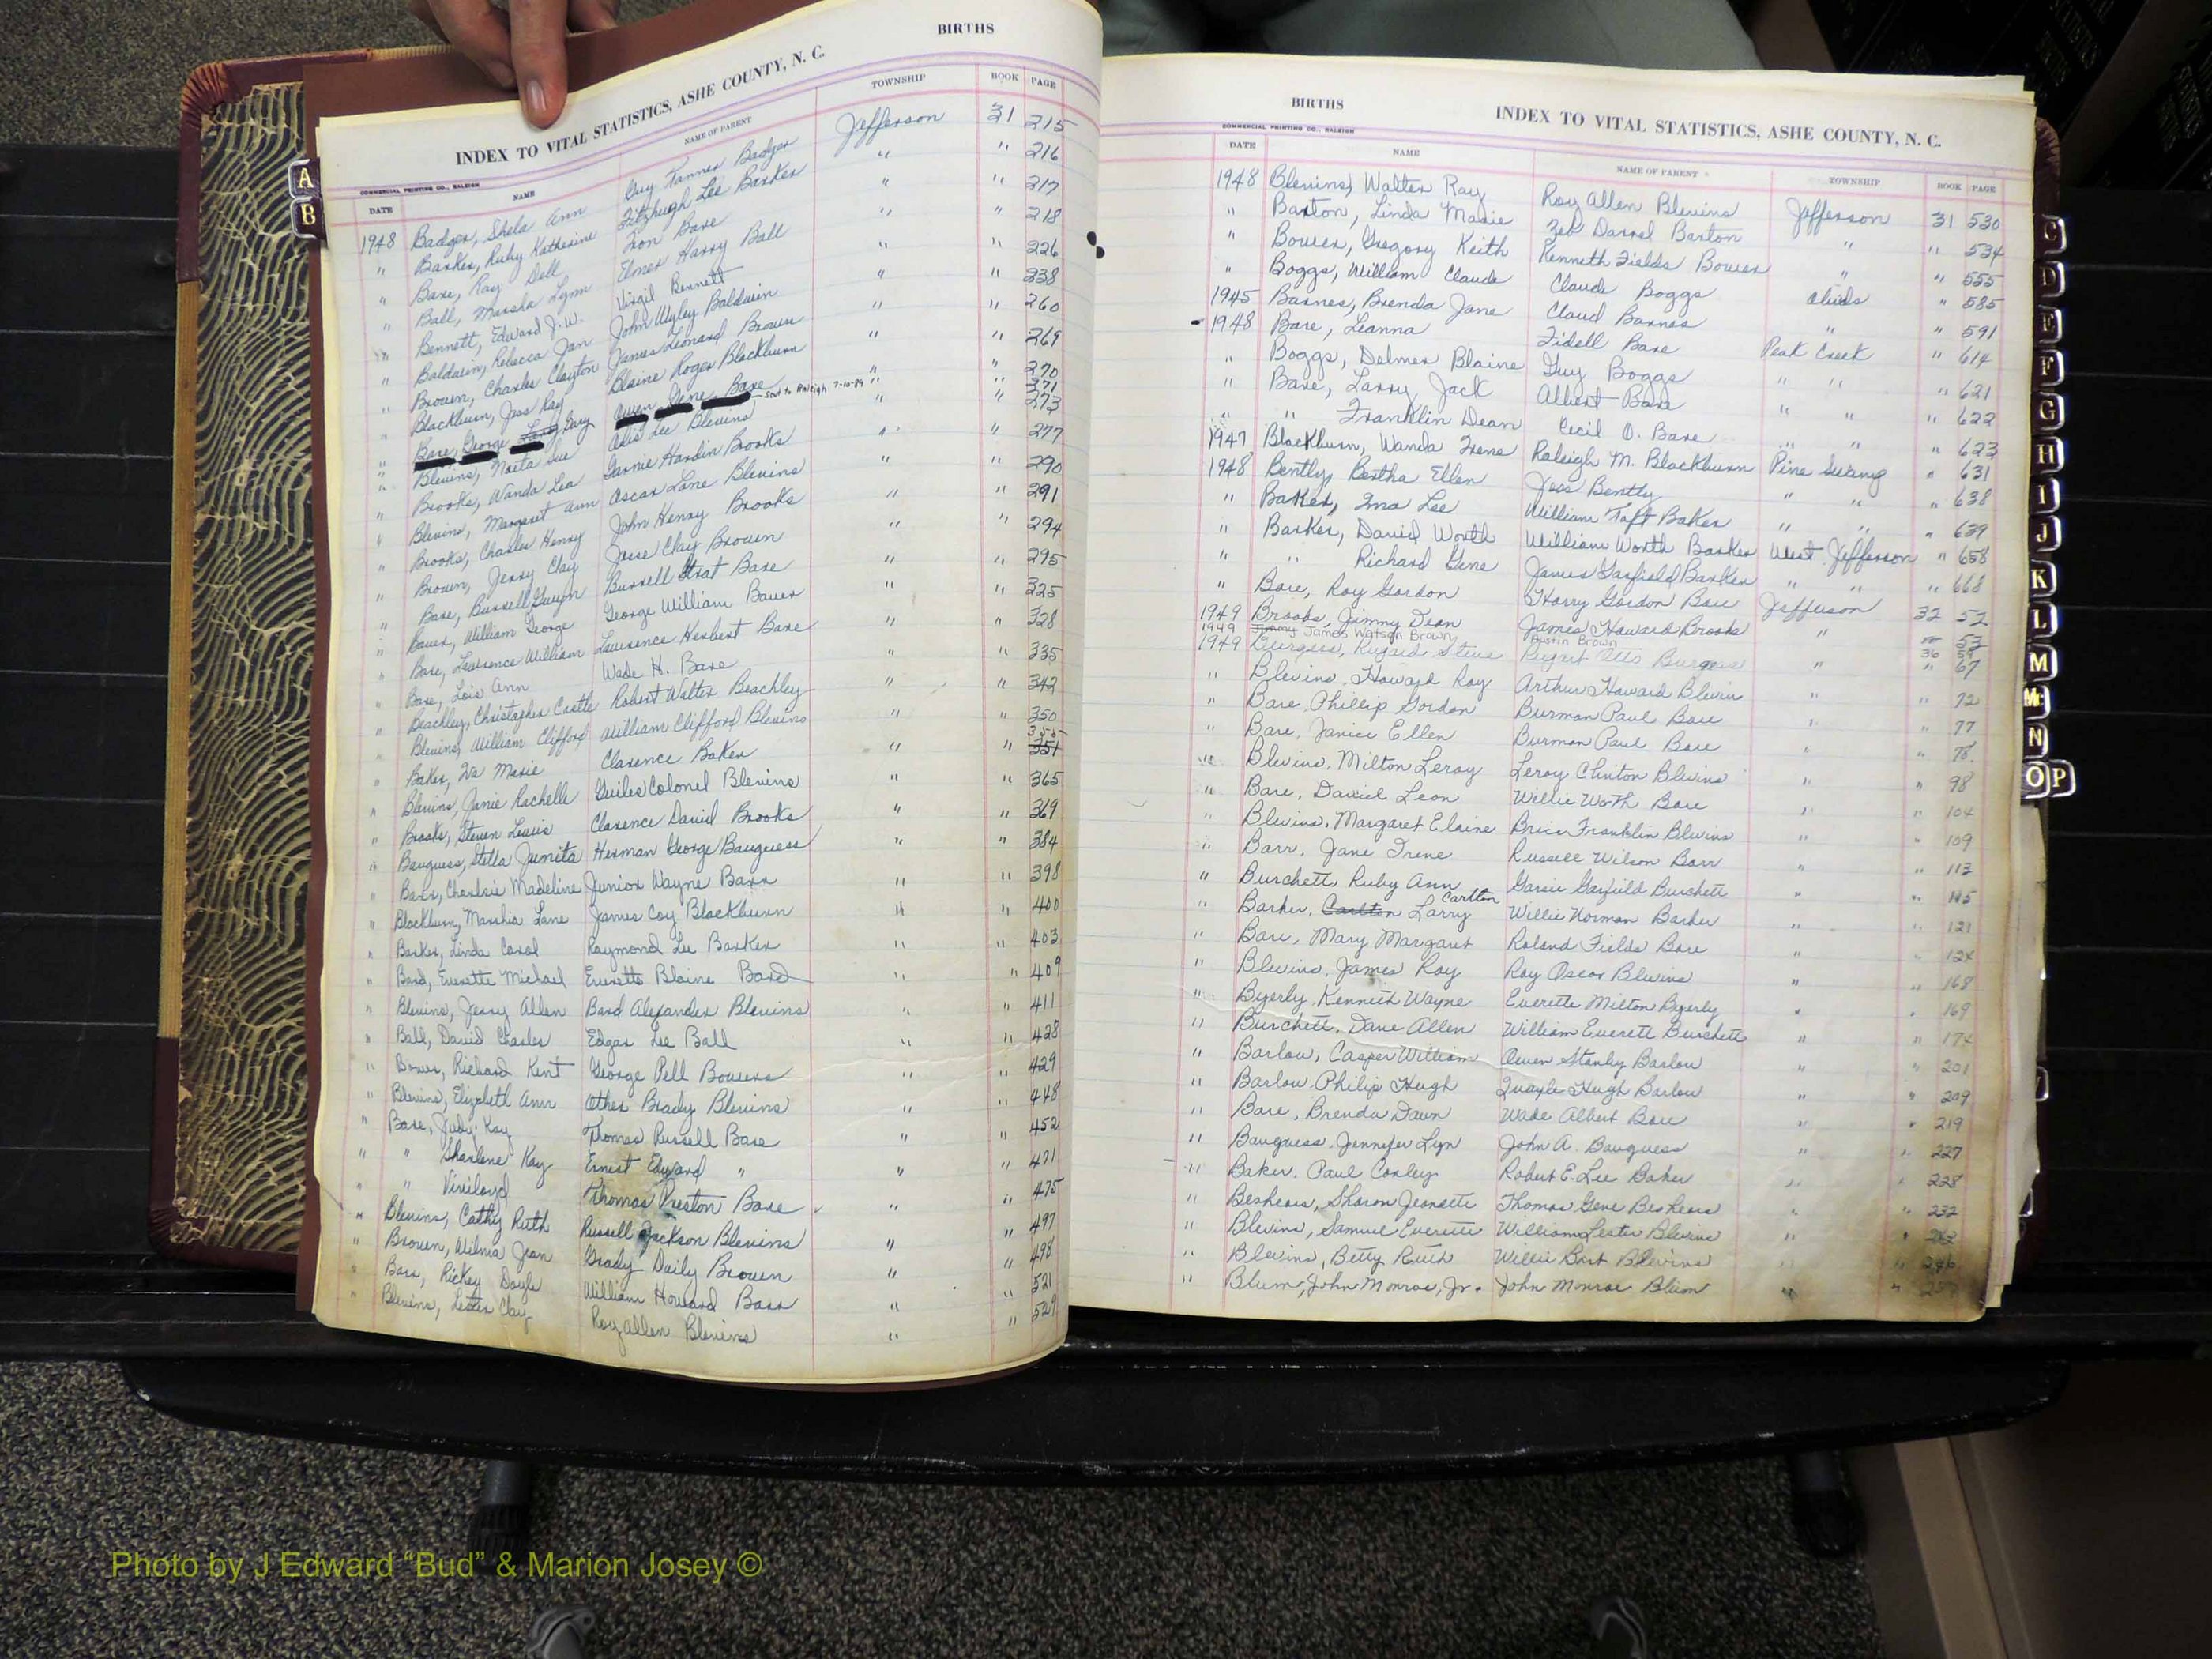 BIRTHS
INDEX TO VITAL STATISTICS, ASHE COUNTY, N. C.
COMMERCIAL PRINTING CO., RALEIGH
DATE NAME NAME OF PARENT TOWNSHIP BOOK PAGE
1948 Badger, Shela Ann Guy Tanner Badger Jefferson 31 215
" Barker, Ruby Katherine Fitzhugh Lee Barker " " 216
" Bare, Ray Dell Iron Bare " " 217
" Ball, Marsha Lynn Elmer Harry Ball " " 218
" Bennett, Edward J.W. Virgil Bennett " " 226
" Baldwin, Rebecca Jan John Wyley Baldwin " " 238
" Brown, Charles Clayton James Leonard Brown " " 260
" Blackburn, Jess Ray Blaine Roger Blackburn " " 269
" Bare, George Gary Gene Bare sent to Raleigh 7-10-89 " " 270
" Blevins, Lee Blevins " " 273
" Brooks, Wanda Lea Garnie Hardin Brooks " " 277
" Blevins, Margaret Ann Oscar Lane Blevins " " 290
" Brooks, Charles Henry John Henry Brooks " " 291
" Brown, Jerry Clay Jesse Clay Brown " " 294
" Bare, Burrell Burrell Strat Bare " " 295
" Bauer, William George George William Bauer " " 325
" Bare, Lawrence William Lawrence Herbert Bare " " 328
" Bare, Lois Ann Wade H. Bare " " 335
" Beachley, Christopher Castle Robert Walter Beachley " " 342
" Blevins, William Clifford William Clifford Blevins " " 350
" Baker, Iva Marie Clarence Baker " " 351
" Blevins, Janie Rachelle Guiles Colonel Blevins " " 365
" Brooks, Steven Lewis Clarence David Brooks " " 369
" Bauguess, Stella Junita Herman George Bauguess " " 384
" Barr, Charlsie Madeline Junior Wayne Barr " " 398
" Blackburn, Marshia Lane James Coy Blackburn " " 400
" Barker, Linda Carol Raymond Lee Barker " " 403
" Bard, Everette Michael Everette Blaine Bard " " 409
" Blevins, Jerry Allen Bard Alexander Blevins " " 411
" Ball, David Charles Edgar Lee Ball " " 428
" Bower, Richard Kent George Pell Bowers " " 429
" Blevins, Elizabeth Ann Other Brady Blevins " " 448
" Bare, Judy Kay Thomas Russell Bare " " 452
" " Sharlene Kay Ernest Edward " " " 471
" " Viriloyd Thomas Preston Bare " " 475
" Blevins, Cathy Ruth Russell Jackson Blevins " " 497
" Brown, Wilma Jean Grady Daily Brown " " 498
" Barr, Rickey Doyle William Howard Barr " " 521
" Blevins, Lester Clay Roy Allen Blevins " " 529
A
B
BIRTHS
INDEX TO VITAL STATISTICS, ASHE COUNTY, N. C.
COMMERCIAL PRINTING CO., RALEIGH
DATE NAME NAME OF PARENT TOWNSHIP BOOK PAGE
1948 Blevins, Walter Ray Roy Allen Blevins Jefferson 31 530
" Barton, Linda Marie Zeb Darrel Barton " " 534
" Bower, Gregory Keith Kenneth Fields Bower " " 555
" Boggs, William Claude Claude Boggs Obids " 585
1945 Barnes, Brenda Jane Claud Barnes " " 591
1948 Bare, Leanna Fidell Bare Peak Creek " 614
" Boggs, Delmer Blaine Guy Boggs " " " 621
" Bare, Larry Jack Albert Bare " " " 622
" " Franklin Dean Cecil O. Bare " " " 623
1947 Blackburn, Wanda Irene Raleigh M. Blackburn Pine Swamp " 631
1948 Bently, Bertha Ellen Jess Bently " " " 638
" Baker, Ima Lee William Taft Baker " " " 639
" Barker, David Worth William Worth Barker West Jefferson " 658
" " Richard Gene James Garfield Barker " " " 668
" Bare, Roy Gordon Harry Gordon Bare Jefferson 32 52
1949 Brooks, Jimmy Dean James Howard Brooks " " 53
1949 Jimmy James Watson Brown Austin Brown 36 59
1949 Burgess, Steve Burgess " " 67
" Blevins, Howard Roy Arthur Howard Blevin " " 72
" Bare, Phillip Gordon Burman Paul Bare " " 77
" Bare, Janice Ellen Burman Paul Bare " " 78
" Blevins, Milton Leroy Leroy Clinton Blevins " " 98
" Bare, Daniel Leon Willie Worth Bare " " 104
" Blevins, Margaret Elaine Brice Franklin Blevins " " 109
" Barr, Jane Irene Russell Wilson Barr " " 113
" Burchett, Ruby Ann Garsie Garfield Burchett " " 115
" Barker, Carlton Larry Carlton Willie Norman Barker " " 121
" Bare, Mary Margaret Roland Fields Bare " " 124
" Blevins, James Roy Roy Oscar Blevins " " 168
" Byerly, Kenneth Wayne Everette Milton Byerly " " 169
" Burchett, Dane Allen William Everett Burchett " " 174
" Barlow, Casper William Owen Stanley Barlow " " 201
" Barlow, Philip Hugh Quayle Hugh Barlow " " 209
" Bare, Brenda Dawn Wade Albert Bare " " 219
" Bauguess, Jennifer Lyn John A. Bauguess " " 227
" Baker, Paul Conley Robert E. Lee Baker " " 228
" Beshears, Sharon Jeanette Thomas Gene Beshears " " 232
" Blevins, Samuel Everette William Lester Blevins "
" Blevins, Betty Ruth Willie Bert Blevins " " 246
" Blum, John Monroe, Jr. John Monroe Blum " "
C
D
E
F
G
H
I
J
K
L
M
Mc
N
O P
Photo by J Edward “Bud” & Marion Josey ©